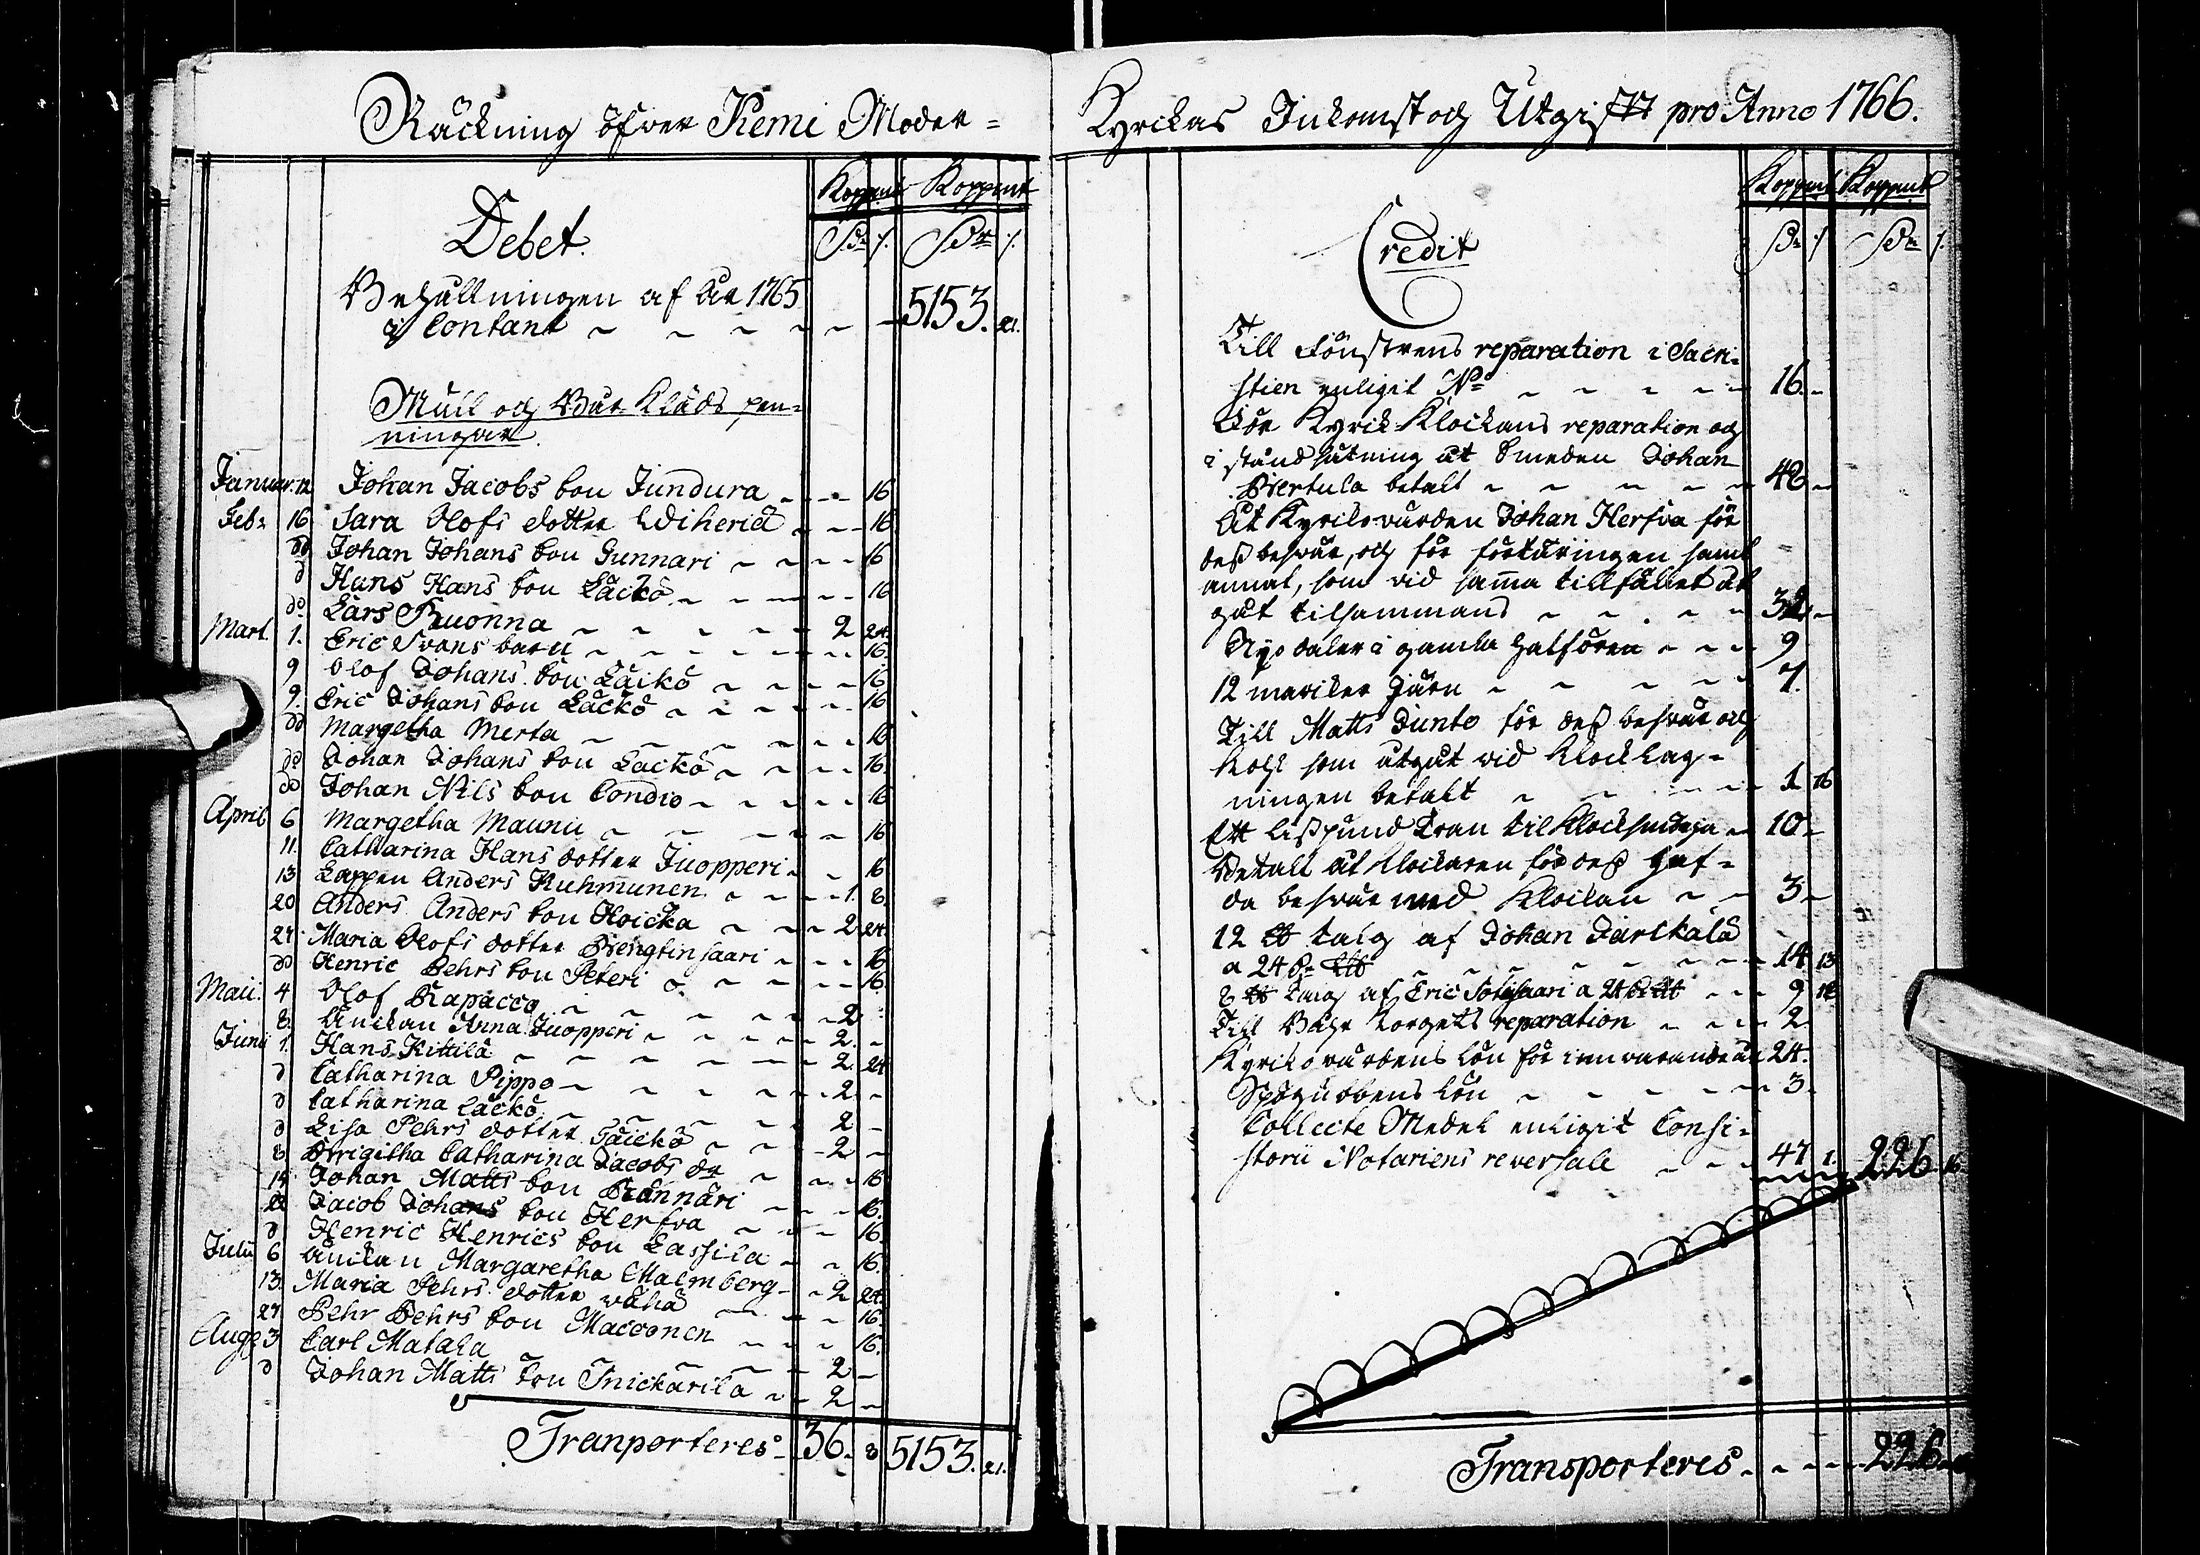 Räckning öfver Kemi Moder=
Koppmt Koppmt
Debet.
Behållningen af år 1765
i Contant 5153. 21.
Mull och Bår Kläds pen=
ningar.
Januar. 12 Johan Jacobs Son Jundura 16
Feb: 16 Sara Olofs dotter Wiheriä 16
do Johan Johans Son Gunnari 16
d Hans Hans Son Läckö 16
do Lars Ruonna 2 24.
Mart. 1. Eric Svans barn 16.
9 Olof Johans Son Läckö 16
9. Eric Johans Son Läckö 16
do Margetha Merta 16
do Johan Johans Son Läckö 16.
do Johan Nils Son Condio 16
April 6 Margetha Maunu 16
11. Catharina Hans dotter Juopperi 16
13 Lappen Anders Kuhmunen 1. 8.
20 Anders Anders Son Hoicka 2 24.
27. Maria Olofs dotter Bengtinsaari 16
do Henric Pehrs Son Peteri 16.
Maii. 4 Olof Rapacco 2
8. Änckan Anna Juopperi 2.
Junii 1. Hans Kittilä 2. 24
d Catharina Pippo 2
d Catharina Läckö 2
d Lisa Pehrs dotter Läickö 2
8 Brigitha Catharina Jacobs dr 16
14 Johan Matts Son Rännäri 16.
22 Jacob Johans Son Herfva 16.
d Henric Henrics Son Lassila 16.
Julii 6 Änckan Margaretha Malmberg 2 24.
13. Maria Pehrs dotter Vähä 16.
27. Pehr Pehrs Son Macconen 16.
Aug 3 Carl Matala 2
d Johan Matts Son Snickärilä 2
Tranporteres 36. 8 5153. 21.
Kyrckas Inkomst och Utgifft pro Anno 1766.
Koppmt Koppmt
Credit
Till fönstrens reparation i Sacri=
stien enligit No 16.
För Kyrck Klockans reparation og
i ståndsätning åt Smeden Johan
Biertula betalt 48
Åt Kyrckovärden Johan Herfva för
dess besvär, och för förtäringen samt
annat, som vid samma tillfället åt
gåt tilsammans 32
Nyo daler i gamla 9
12 marcker Järn 7.
Till Matts Junto för dess besvär och
Kohl som åtgåt vid Klock lag=
ningen betalt 1 16
Ett Lispund Tran til Klocksmörja 10
Betalt åt Klockaren för dess haf=
da besvär med Klockan 3
12 ℔ talg af Johan Järckälä
a 24 14 13
8 ℔ Talg af Eric Sotisaari a 24 9 12
Till Båhr torgets reparation 2
Kyrckovärdens Lön för innevarande år 24.
Spögubbens Lön 3.
Collecte Medel enligit Consi=
storii Notariens reversale 47 1. 226. 16
Transporteres 226.